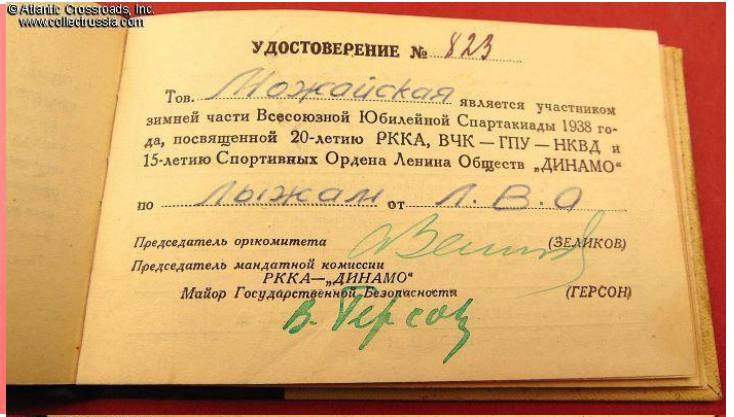 © Atlantic Crossroads, Inc.
www.collectrussia.com
УДОСТОВЕРЕНИЕ № 823
Тов. Можайская является участником
зимней части Всесоюзной Юбилейной Спартакиады 1938 го-
да, посвященной 20-летию РККА, ВЧК — ГПУ — НКВД и
15-летию Спортивных Ордена Ленина Обществ „ДИНАМО“
по лыжам от Л. В. О
Председатель оргкомитета (ЗЕЛИКОВ)
Председатель мандатной комиссии
РККА—„ДИНАМО“
Майор Государственной Безопасности (ГЕРСОН)
В. Герсон